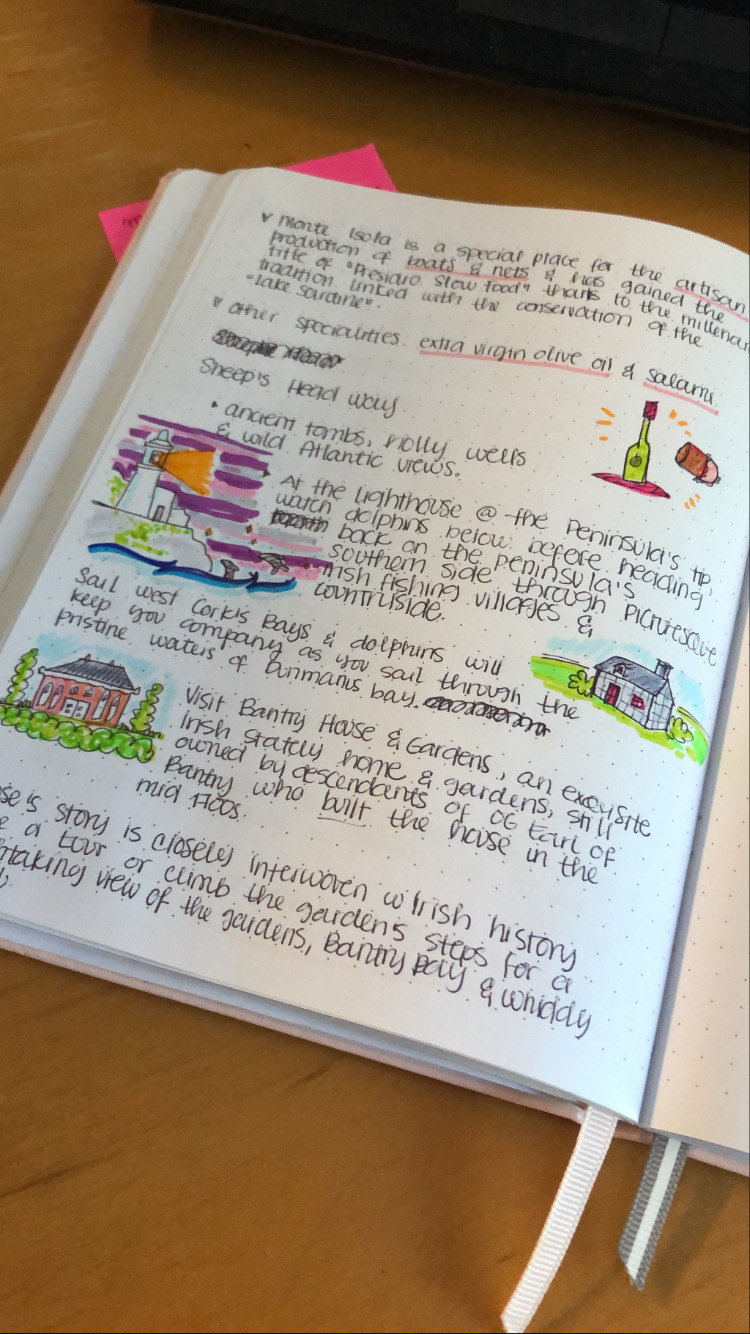 Monte Isola is a special place for the artisan
production of boats & nets & has gained the
title of "Presidio Slow food" thanks to the millenar
tradition linked with the conservation of the
"lake sardine".
other specialities. extra virgin olive oil & salami.
Sheep's Head way
• ancient tombs, holly wells
& wild Atlantic views.
At the lighthouse @ the peninsula's tip,
watch dolphins below before heading
back on the peninsula's
southern side through picturesque
Irish fishing villages &
countryside.
Sail west Cork's Bays & dolphins will
keep you company as you sail through the
pristine waters of Dunmanus bay.
Visit Bantry House & Gardens, an exquisite
Irish stately home & gardens, still
owned by descendants of OG Earl of
Bantry who built the house in the
mid 1700s.
se's story is closely interwoven w Irish history
e a tour or climb the garden's steps for a
taking view of the gardens, Bantry Bay & Whiddy